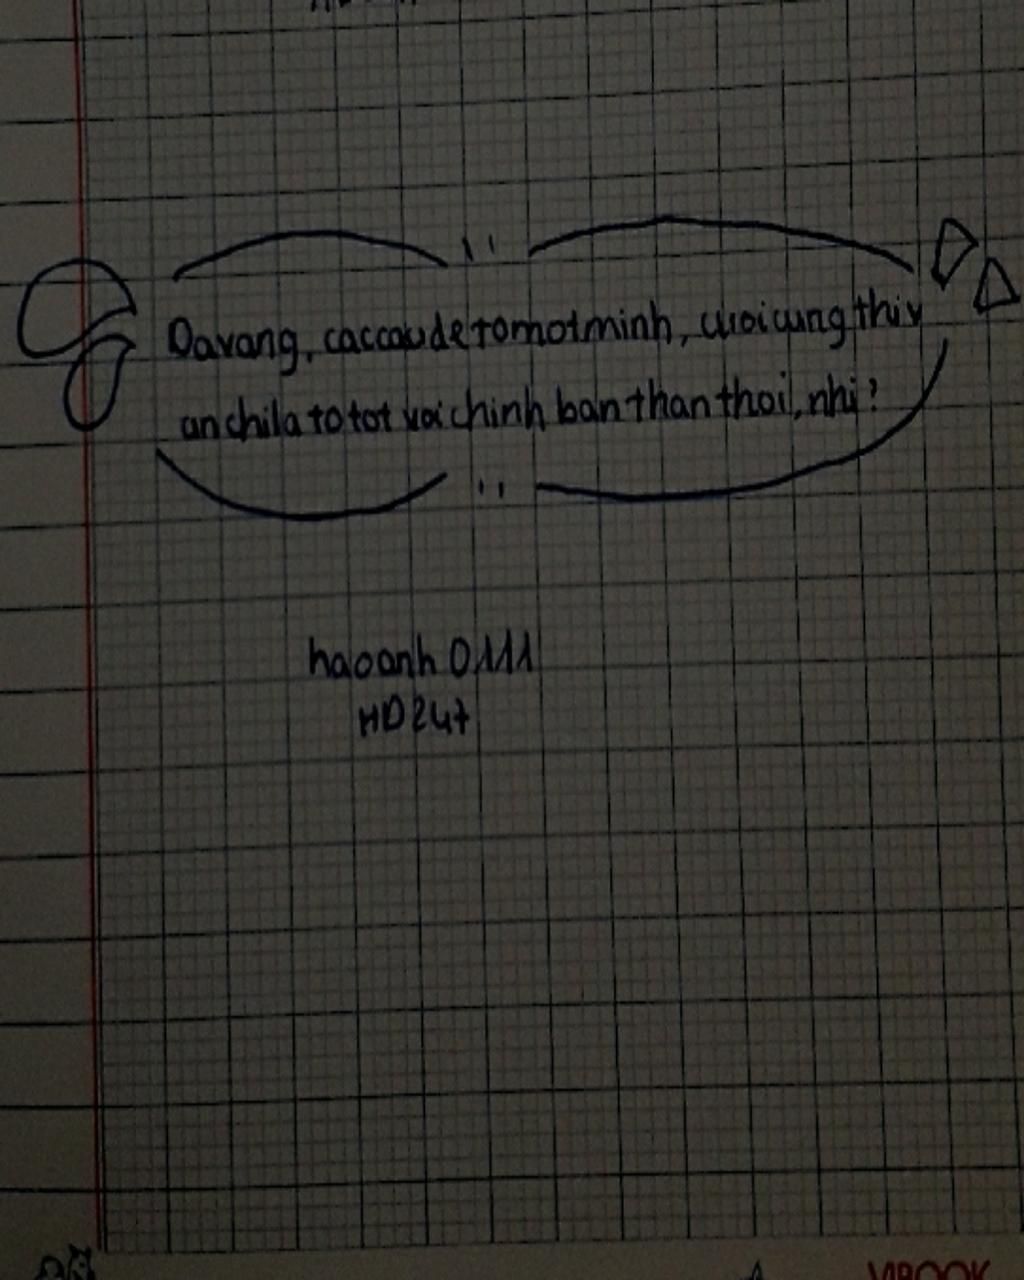 Davang, caccaudetomotminh, cuoicungthiv
anchila to tot voichinh banthanthoi, nhi?
haoanh 0111
HD247